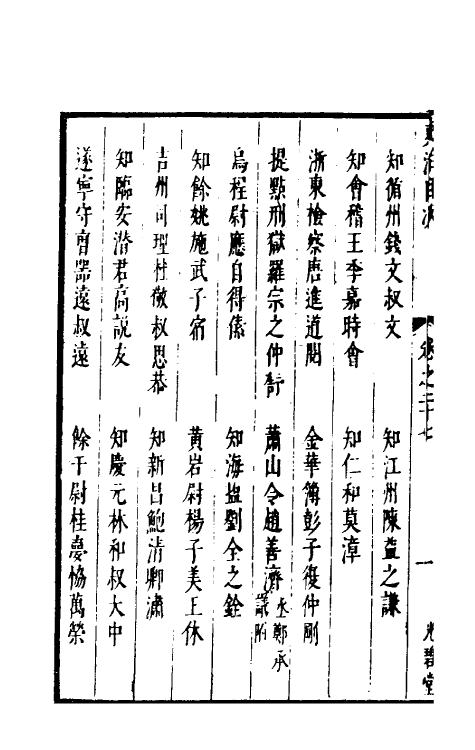 卷之二十七
一
光碧堂
知循州錢文叔文
知江州陳益之謙
知會稽王季嘉時會
知仁和莫漳
浙東檢察唐進道閱
金華簿彭子復仲剛
提點刑獄羅宗之仲舒
蕭山令趙善濟丞鄭承議附
烏程尉應自得傃
知海鹽劉全之銓
知餘姚施武子宿
黃岩尉楊子美王休
吉州司理杜敬叔思恭
知新昌鮑清卿潚
知臨安潛君高說友
知慶元林和叔大中
遂寧守曹器遠叔遠
餘干尉桂夢協萬榮